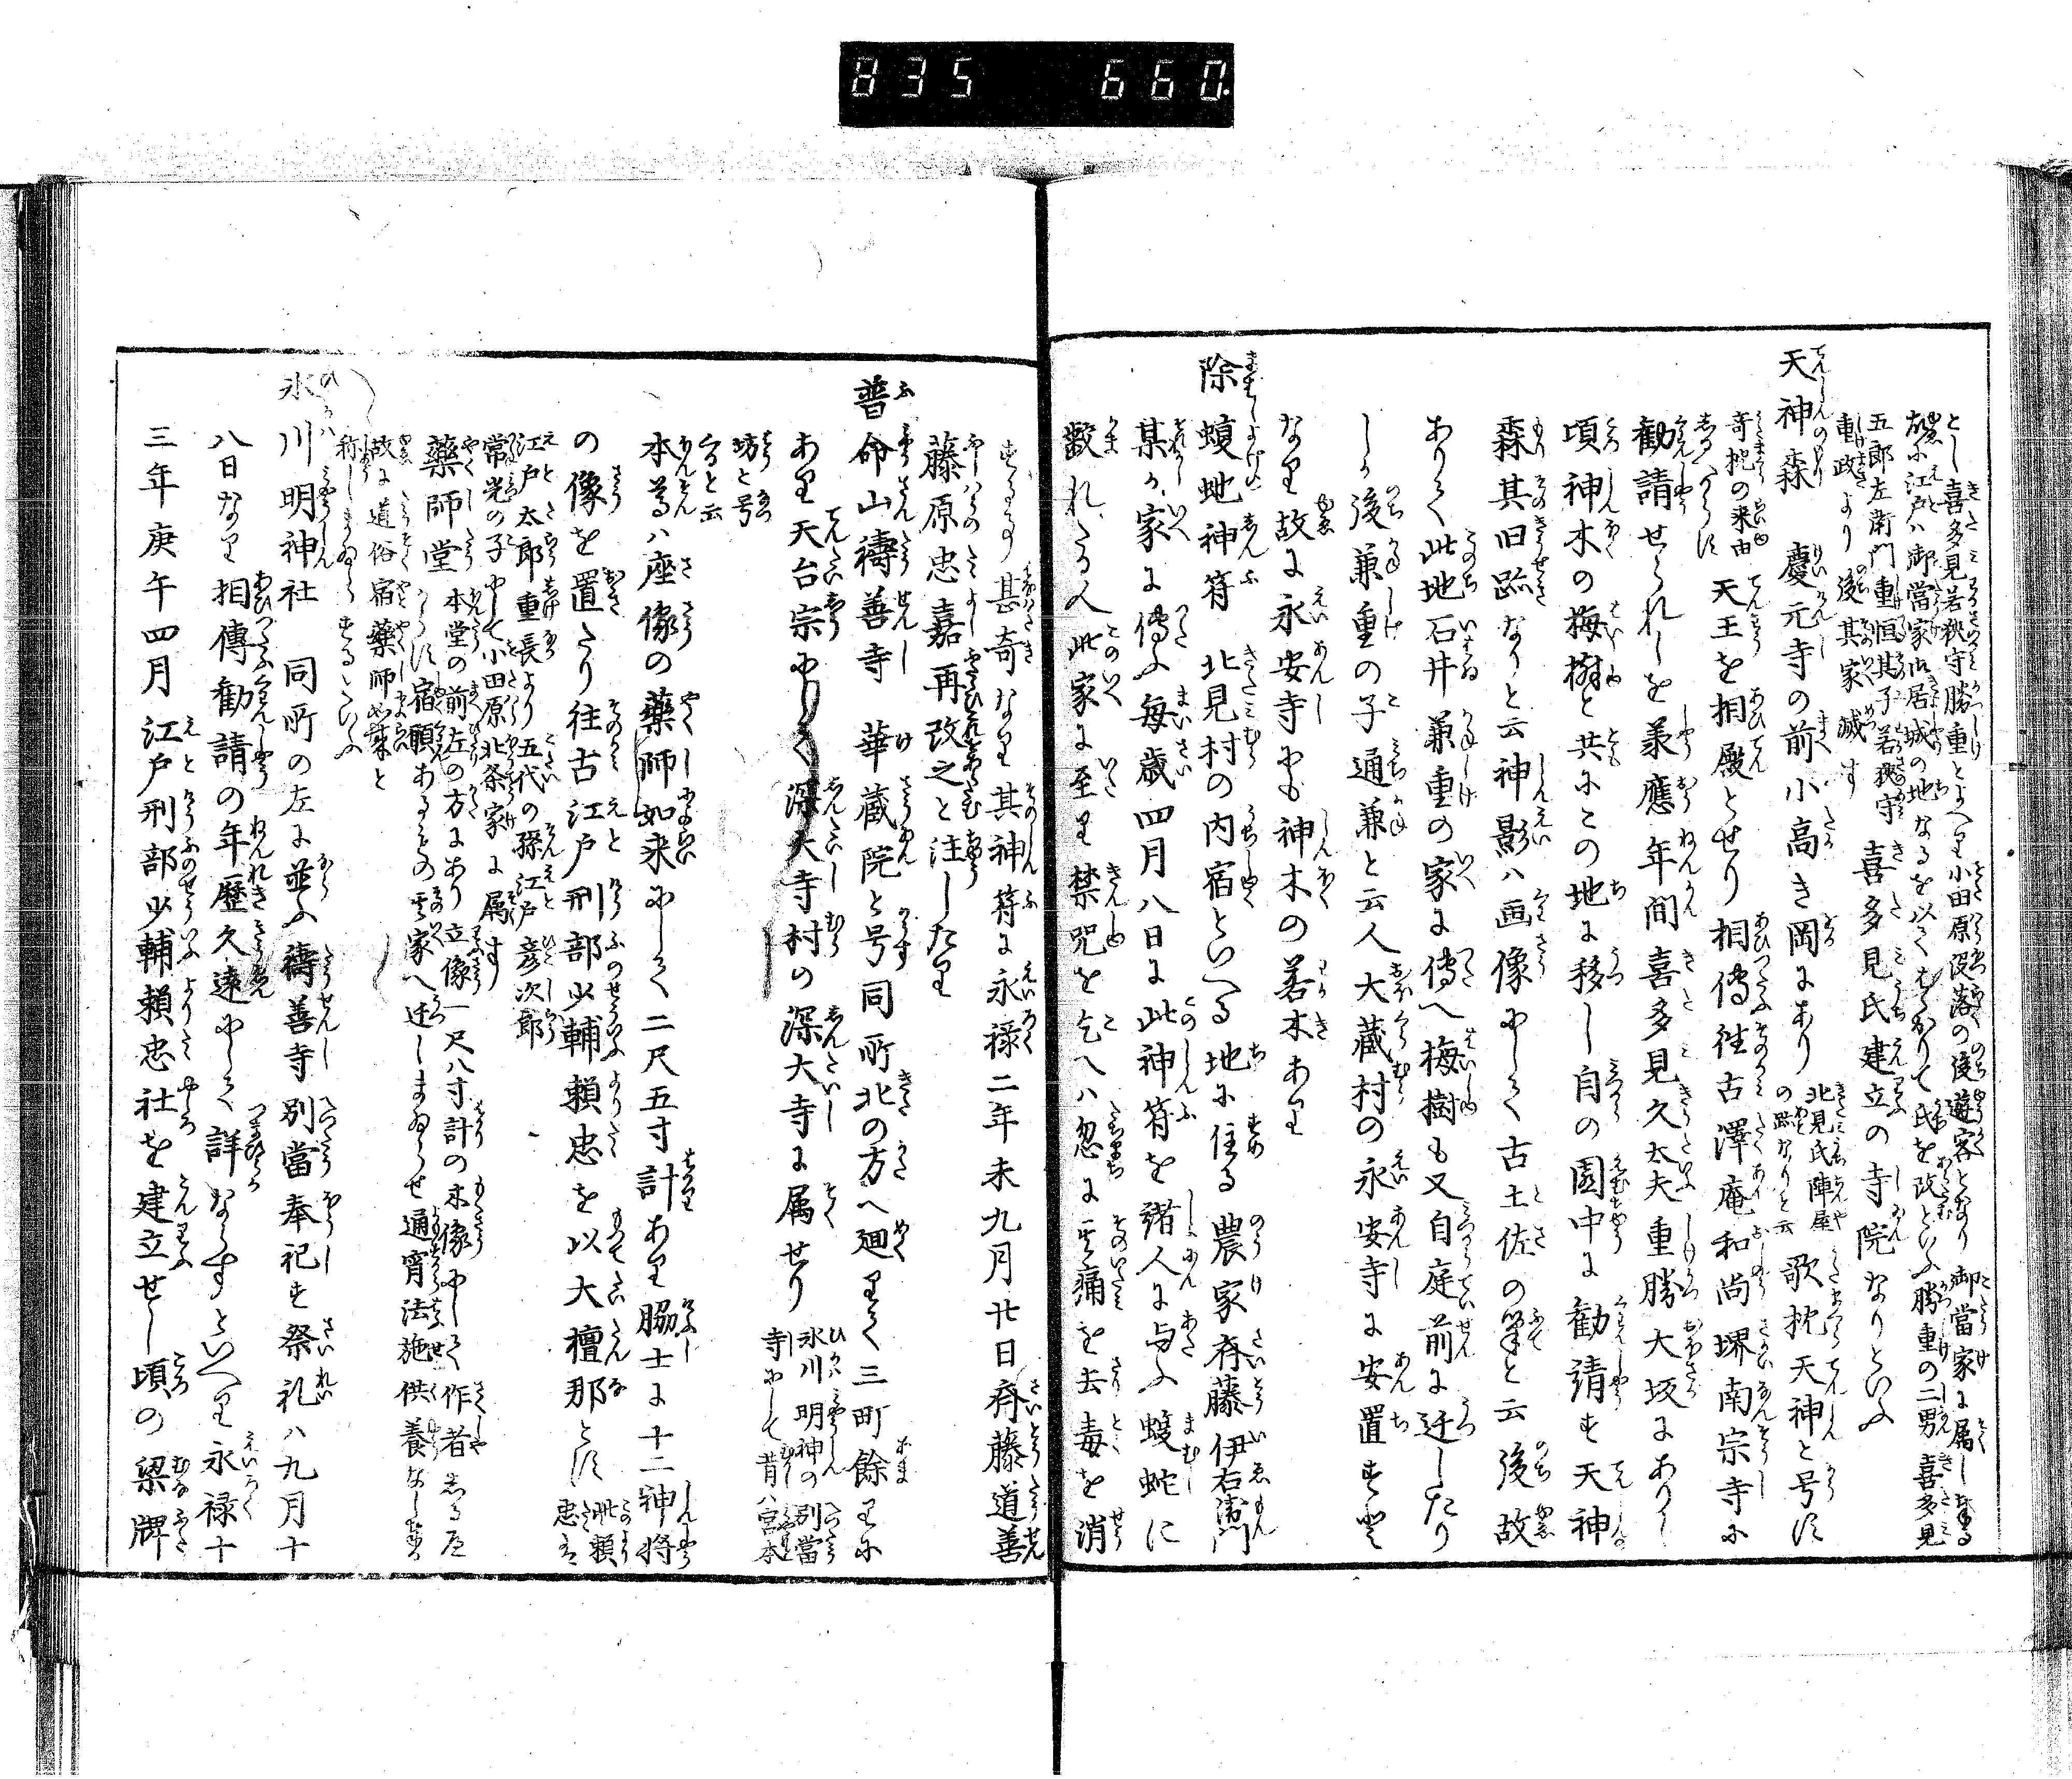 835 660.
とし喜多見若狭守勝重とよへり小田原没落の後遊客となり御當家に属し奉る
故に江戸ハ御當家御居城の地なるを以てはゝかりて氏を改といふ勝重の二男喜多見
五郎左衛門重恒其子若狭守
重政より後其家滅す
喜多見氏建立の寺院なりといふ
天神森 慶元寺の前小高き岡にあり
北見氏陣屋
の跡なりと云
歌枕天神と号す
哥枕の来由
しるへからす
天王を相殿とせり相傳往古澤庵和尚堺南宗寺に
勧請せられしを兼應年間喜多見久太夫重勝大坂にありし
頃神木の梅樹と共にこの地に移し自の園中に勧請す天神
森其旧跡なりと云神影ハ画像にして古土佐の筆と云後故
ありて此地石井兼重の家に傳へ梅樹も又自庭前に迁したり
しか後兼重の子通兼と云人大蔵村の永安寺に安置す
なり故に永安寺にも神木の若木あり
除蝮虵神符 北見村の内宿といへる地に住る農家斉藤伊右衛門
某か家に傳ふ毎歳四月八日に此神符を諸人に与ふ蝮蛇に
齧れたる人此家に至り禁咒を乞へハ忽に其痛を去毒を消
する事甚奇なり其神符に永禄二年未九月廿日斉藤道善
藤原忠嘉再改之と注したり
普命山禱善寺 華蔵院と号同所北の方へ廻りて三町餘りに
あり天台宗にして深大寺村の深大寺に属せり
氷川明神の別當
寺にして昔ハ宮本
坊と号
ると云
本尊ハ座像の藥師如来にして二尺五寸計あり脇士に十二神将
の像を置たり往古江戸刑部少輔頼忠を以大檀那とす
此頼
忠ハ
江戸太郎重長より五代の孫江戸彦次郎
常光の子にして小田原北条家に属す
藥師堂
本堂の前左の方にあり立像一尺八寸計の木像にして作者しる
からす宿願あるもの其家へ迁しまゐらせ通宵法施供養なし
故に道俗宿藥師如来と
称しまゐらするといふ
氷川明神社 同所の左に並ふ禱善寺別當奉祀す祭礼ハ九月十
八日なり相傳勧請の年歴久遠にして詳ならすといへり永禄十
三年庚午四月江戸刑部少輔頼忠社を建立せし頃の梁牌